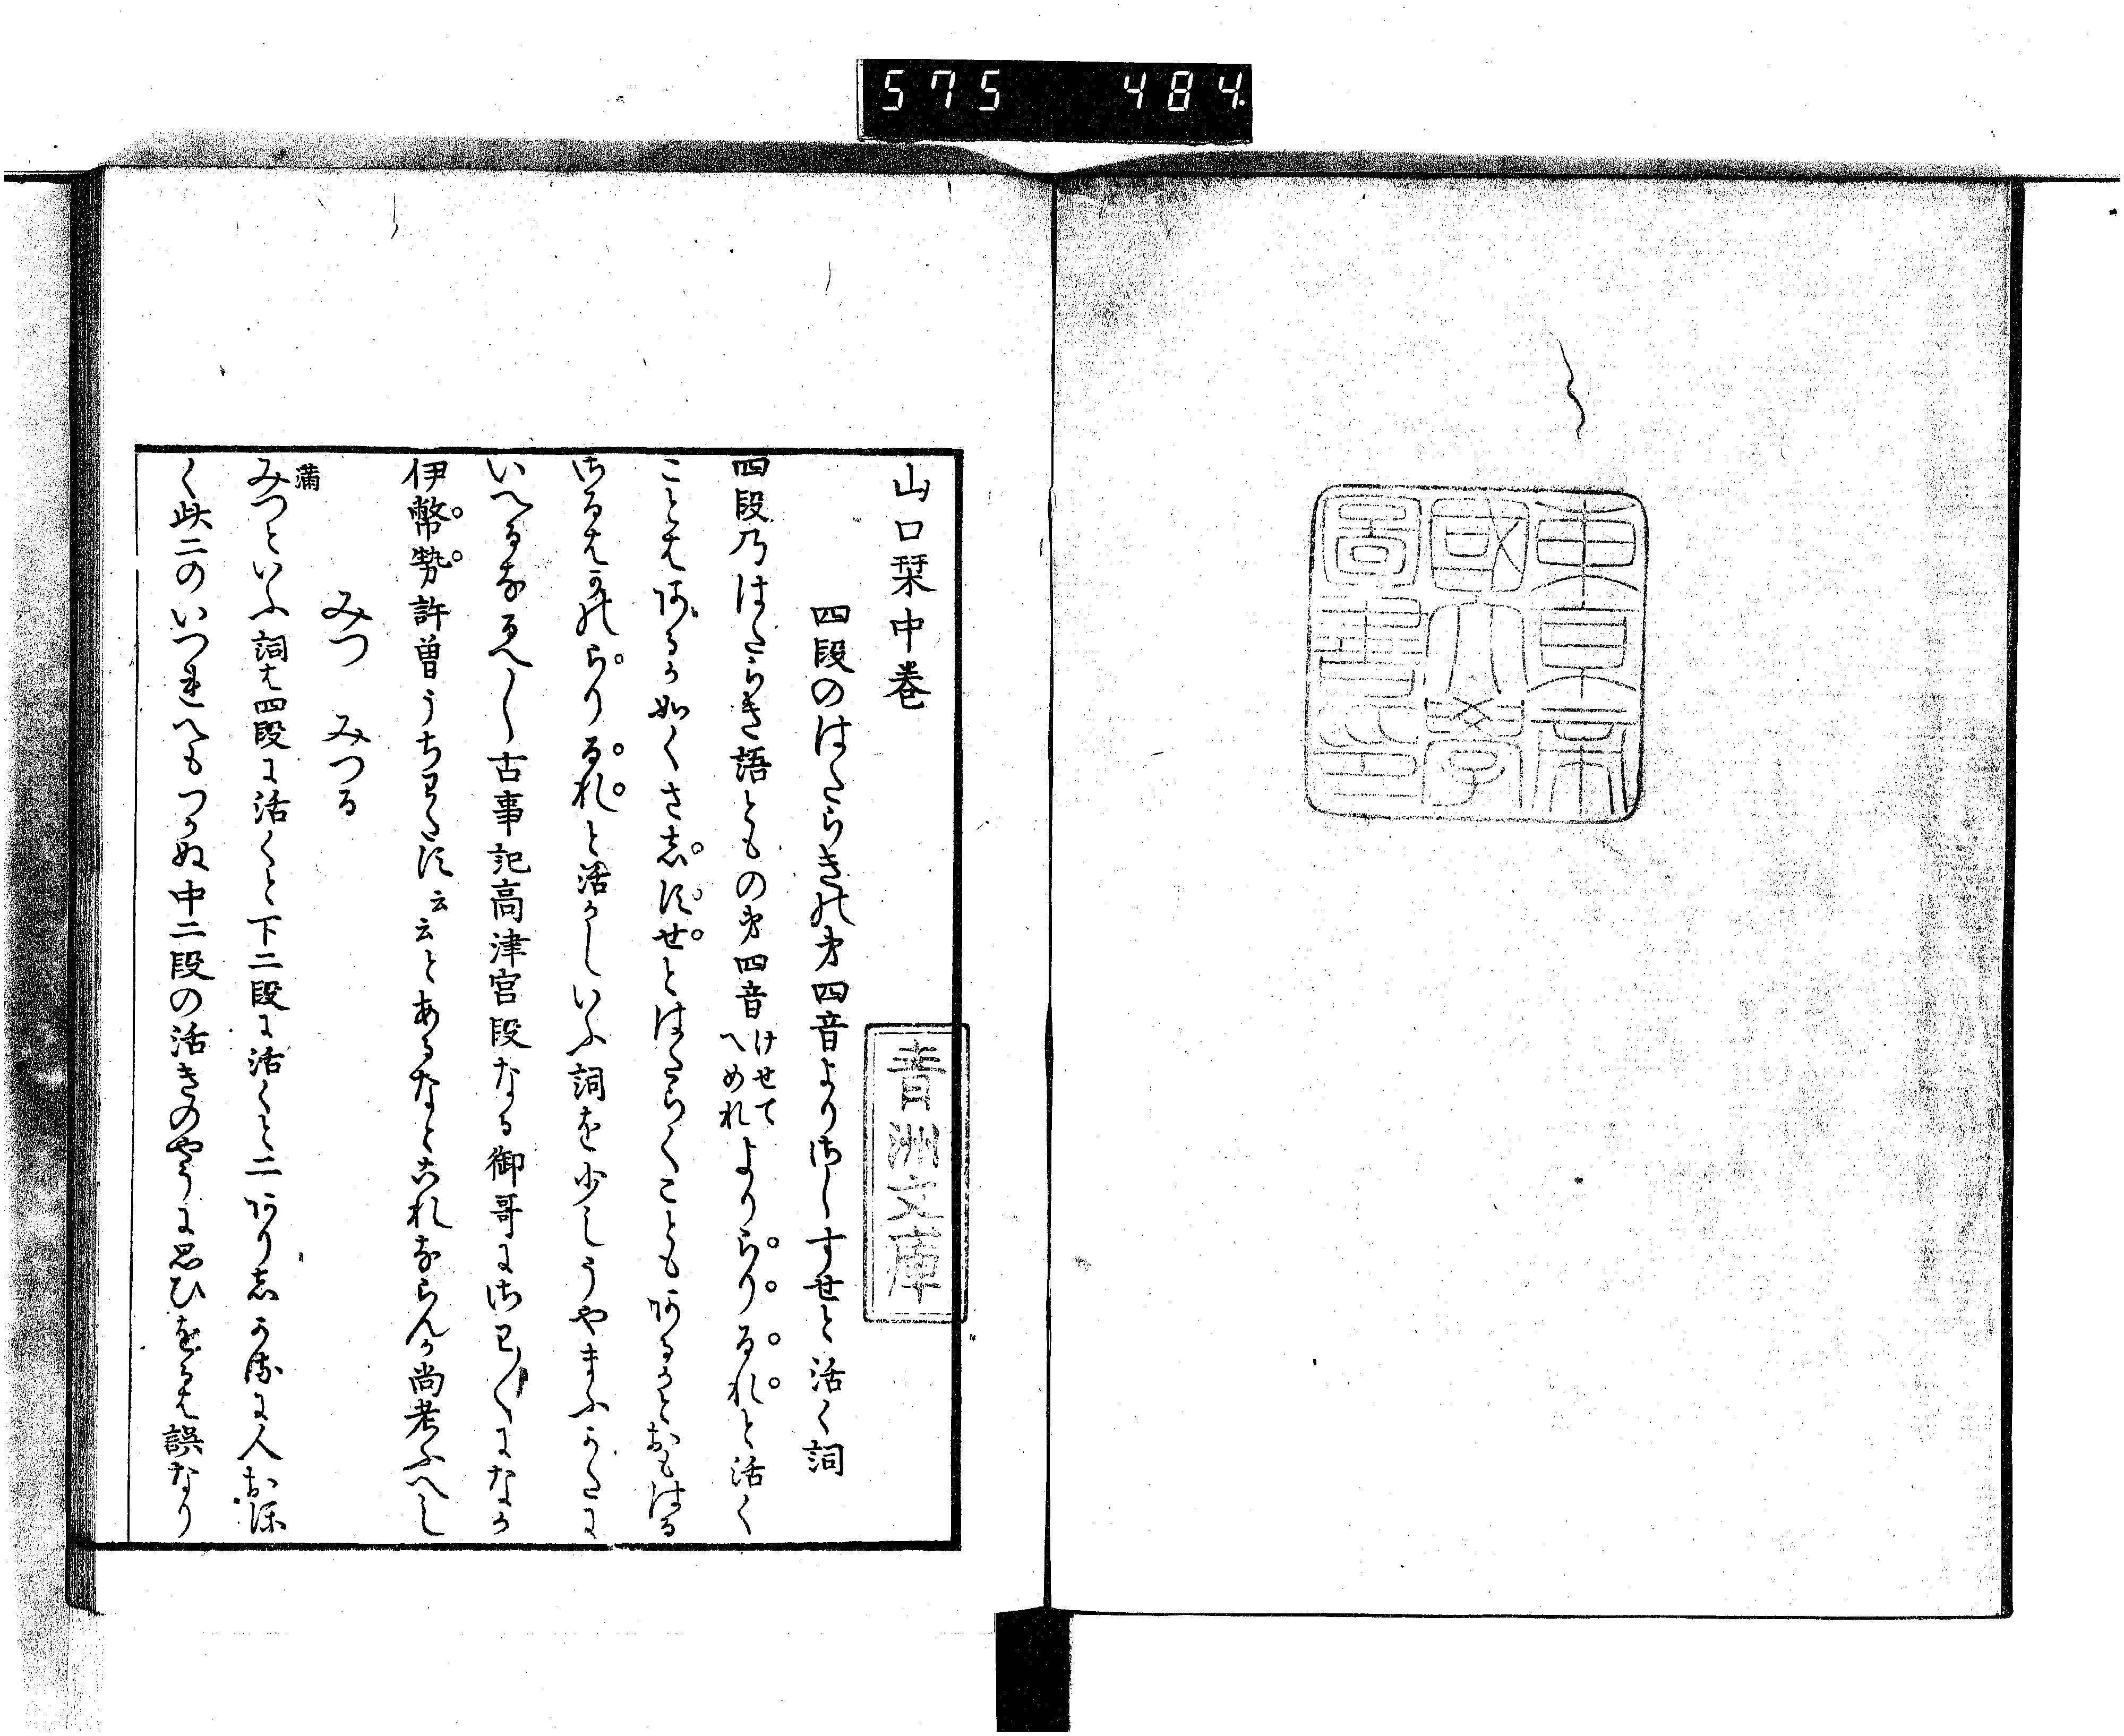 575 484
東京帝
國大學
圖書印
山口栞中巻
青洲文庫
四段のはたらきの第四音よりさしすせと活く詞
四段乃はたらき語ともの第四音けせてへめれよりらりるれと活く
ことはあるか如くさしすせとはたらくこともあるかとおもはる
さるはかのらりるれと活かしいふ詞を少しうやまふかたに
いへるなるへし古事記高津宮段なる御哥にさわ〳〵になか
伊幣勢許曽うちわたす云云とあるなとこれならんか尚考ふへし
みつ みつる
満
みつといふ詞は四段に活くと下二段に活くと二ありしかるに人おほ
く此二のいつれへもつかぬ中二段の活きのやうに思ひをるは誤なり